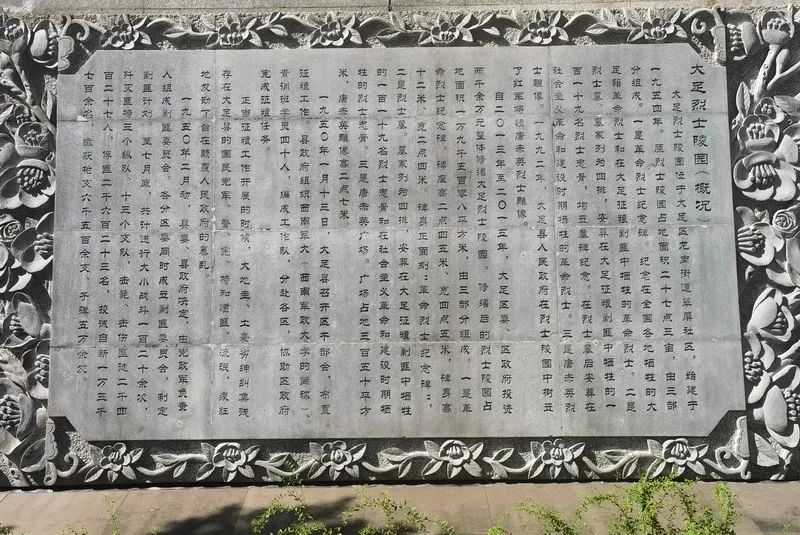 大足烈士陵园(概况)
大足烈士陵园位于大足区龙岗街道翠屏社区，始建于
一九五四年。原烈士陵园占地面积二十七点三亩，由三部
分组成。一是革命烈士纪念碑。纪念在全国各地牺牲的大
足籍革命烈士和在大足征粮剿匪中牺牲的革命烈士。二是
烈士墓。墓冢列为四排，安葬在大足征粮剿匪中牺牲的一
百一十九名烈士忠骨，均立墓碑纪念。在烈士墓后安葬在
社会主义革命和建设时期牺牲的革命烈士。三是唐赤英烈
士雕像。一九九二年，大足县人民政府在烈士陵园中树立
了红军将领唐赤英烈士雕像。
自二0一三年至二0一五年，大足区委、区政府投资
两千余万元整体修缮大足烈士陵园。修缮后的烈士陵园占
地面积一万九千五百零八平方米，由三部分组成。一是革
命烈士纪念碑。碑座高二点四五米，宽四点五米，碑身高
十二米，宽二点四米，碑身正面刻：革命烈士纪念碑；
二是烈士墓。墓冢列为四排，安葬在大足征粮剿匪中牺牲
的一百一十九名烈士忠骨和在社会主义革命和建设时期牺
牲的烈士忠骨。三是唐赤英广场。广场占地三百五十平方
米，唐赤英雕像高二点七米。
一九五0年一月十三日，大足县召开区干部会，布置
征粮工作。县政府组织西南军大(西南军政大学的简称)、
青训班学员四十人，编成工作队，分赴各区，协助区政府
完成征粮任务。
正当征粮工作开展的时候，大地主、土豪劣绅纠集残
存在大足县的国民党军、警、宪、特和惯匪、流氓，疯狂
地发动了旨在颠覆人民政府的暴乱。
一九五0年二月初，县委、县政府决定，由党政军负责
人组成剿匪委员会，各分区委同时成立剿匪委员会，制定
剿匪计划，至七月底，共计进行大小战斗一百二十余次，
歼灭匪特三个纵队，十三个支队，击毙、击伤匪徒二千四
百二十七人，俘匪二千六百二十三名，投诚自新一万三千
七百余名，缴获枪支六千五百余支，子弹五万余发。